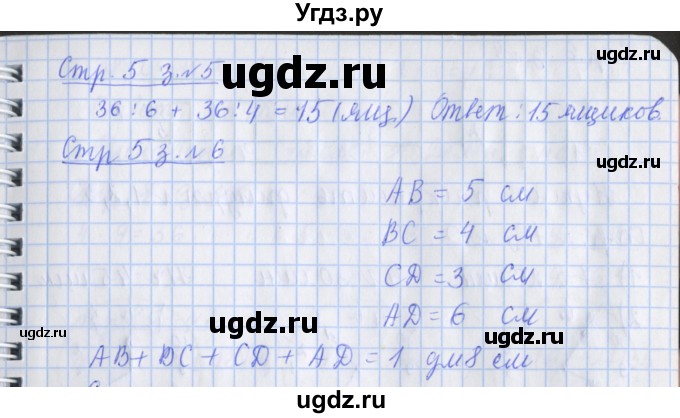 Угдз.ру
Стр. 5 з. №5
ugdz.ru
36 : 6 + 36 : 4 = 15 (ящ.) Ответ: 15 ящиков.
Стр 5 з. №6
ugdz.ru
AB = 5 см
BC = 4 см
ugdz.ru
CD = 3 см
ugdz.ru
AD = 6 см
ugdz.ru
ugdz.ru
AB + BC + CD + AD = 1 дм 8 см
ugdz.ru
ugdz.ru